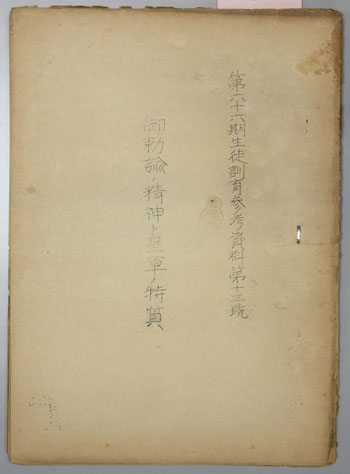 第六十六期生徒訓育参考資料第十三號
御勅諭ノ精神ト皇軍ノ特質